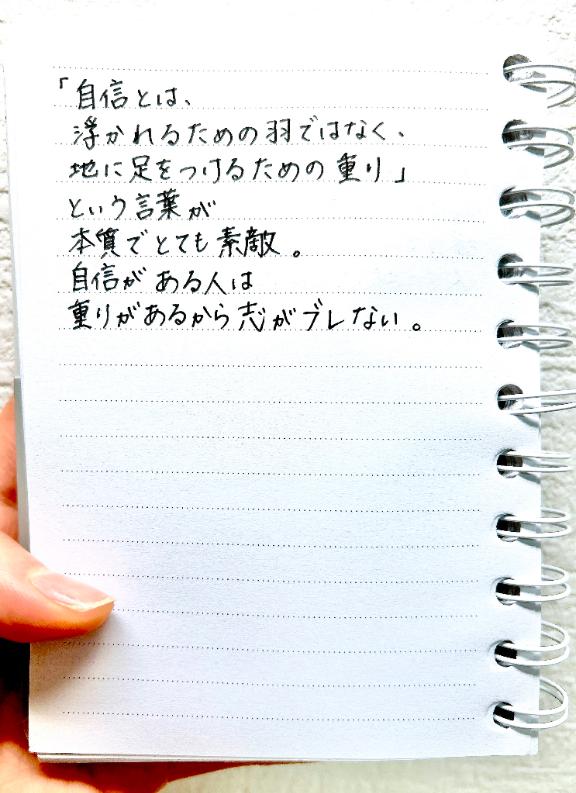 「自信とは、
浮かれるための羽ではなく、
地に足をつけるための重り」
という言葉が
本質でとても素敵。
自信がある人は
重りがあるから志がブレない。